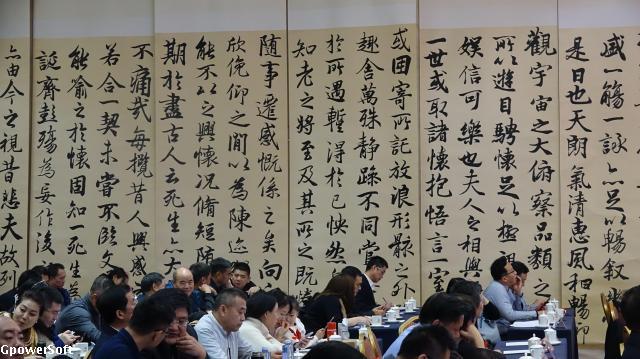 盛一觴一詠亦足以暢叙幽
是日也天朗氣清惠風和暢仰
觀宇宙之大俯察品類之
所以遊目騁懷足以極視
娛信可樂也夫人之相與
一世或取諸懷抱悟言一室
或因寄所託放浪形骸之外
趣舍萬殊靜躁不同當
於所遇暫得於己快然
知老之將至及其所之既
隨事遷感慨係之矣向
欣俛仰之閒以為陳迹
能不以之興懷況脩短隨
期於盡古人云死生亦大
不痛哉每攬昔人興感
若合一契未嘗不臨文
能喻之於懷固知一死生為
誕齊彭殤為妄作後
亦由今之視昔悲夫故列
GpowerSoft